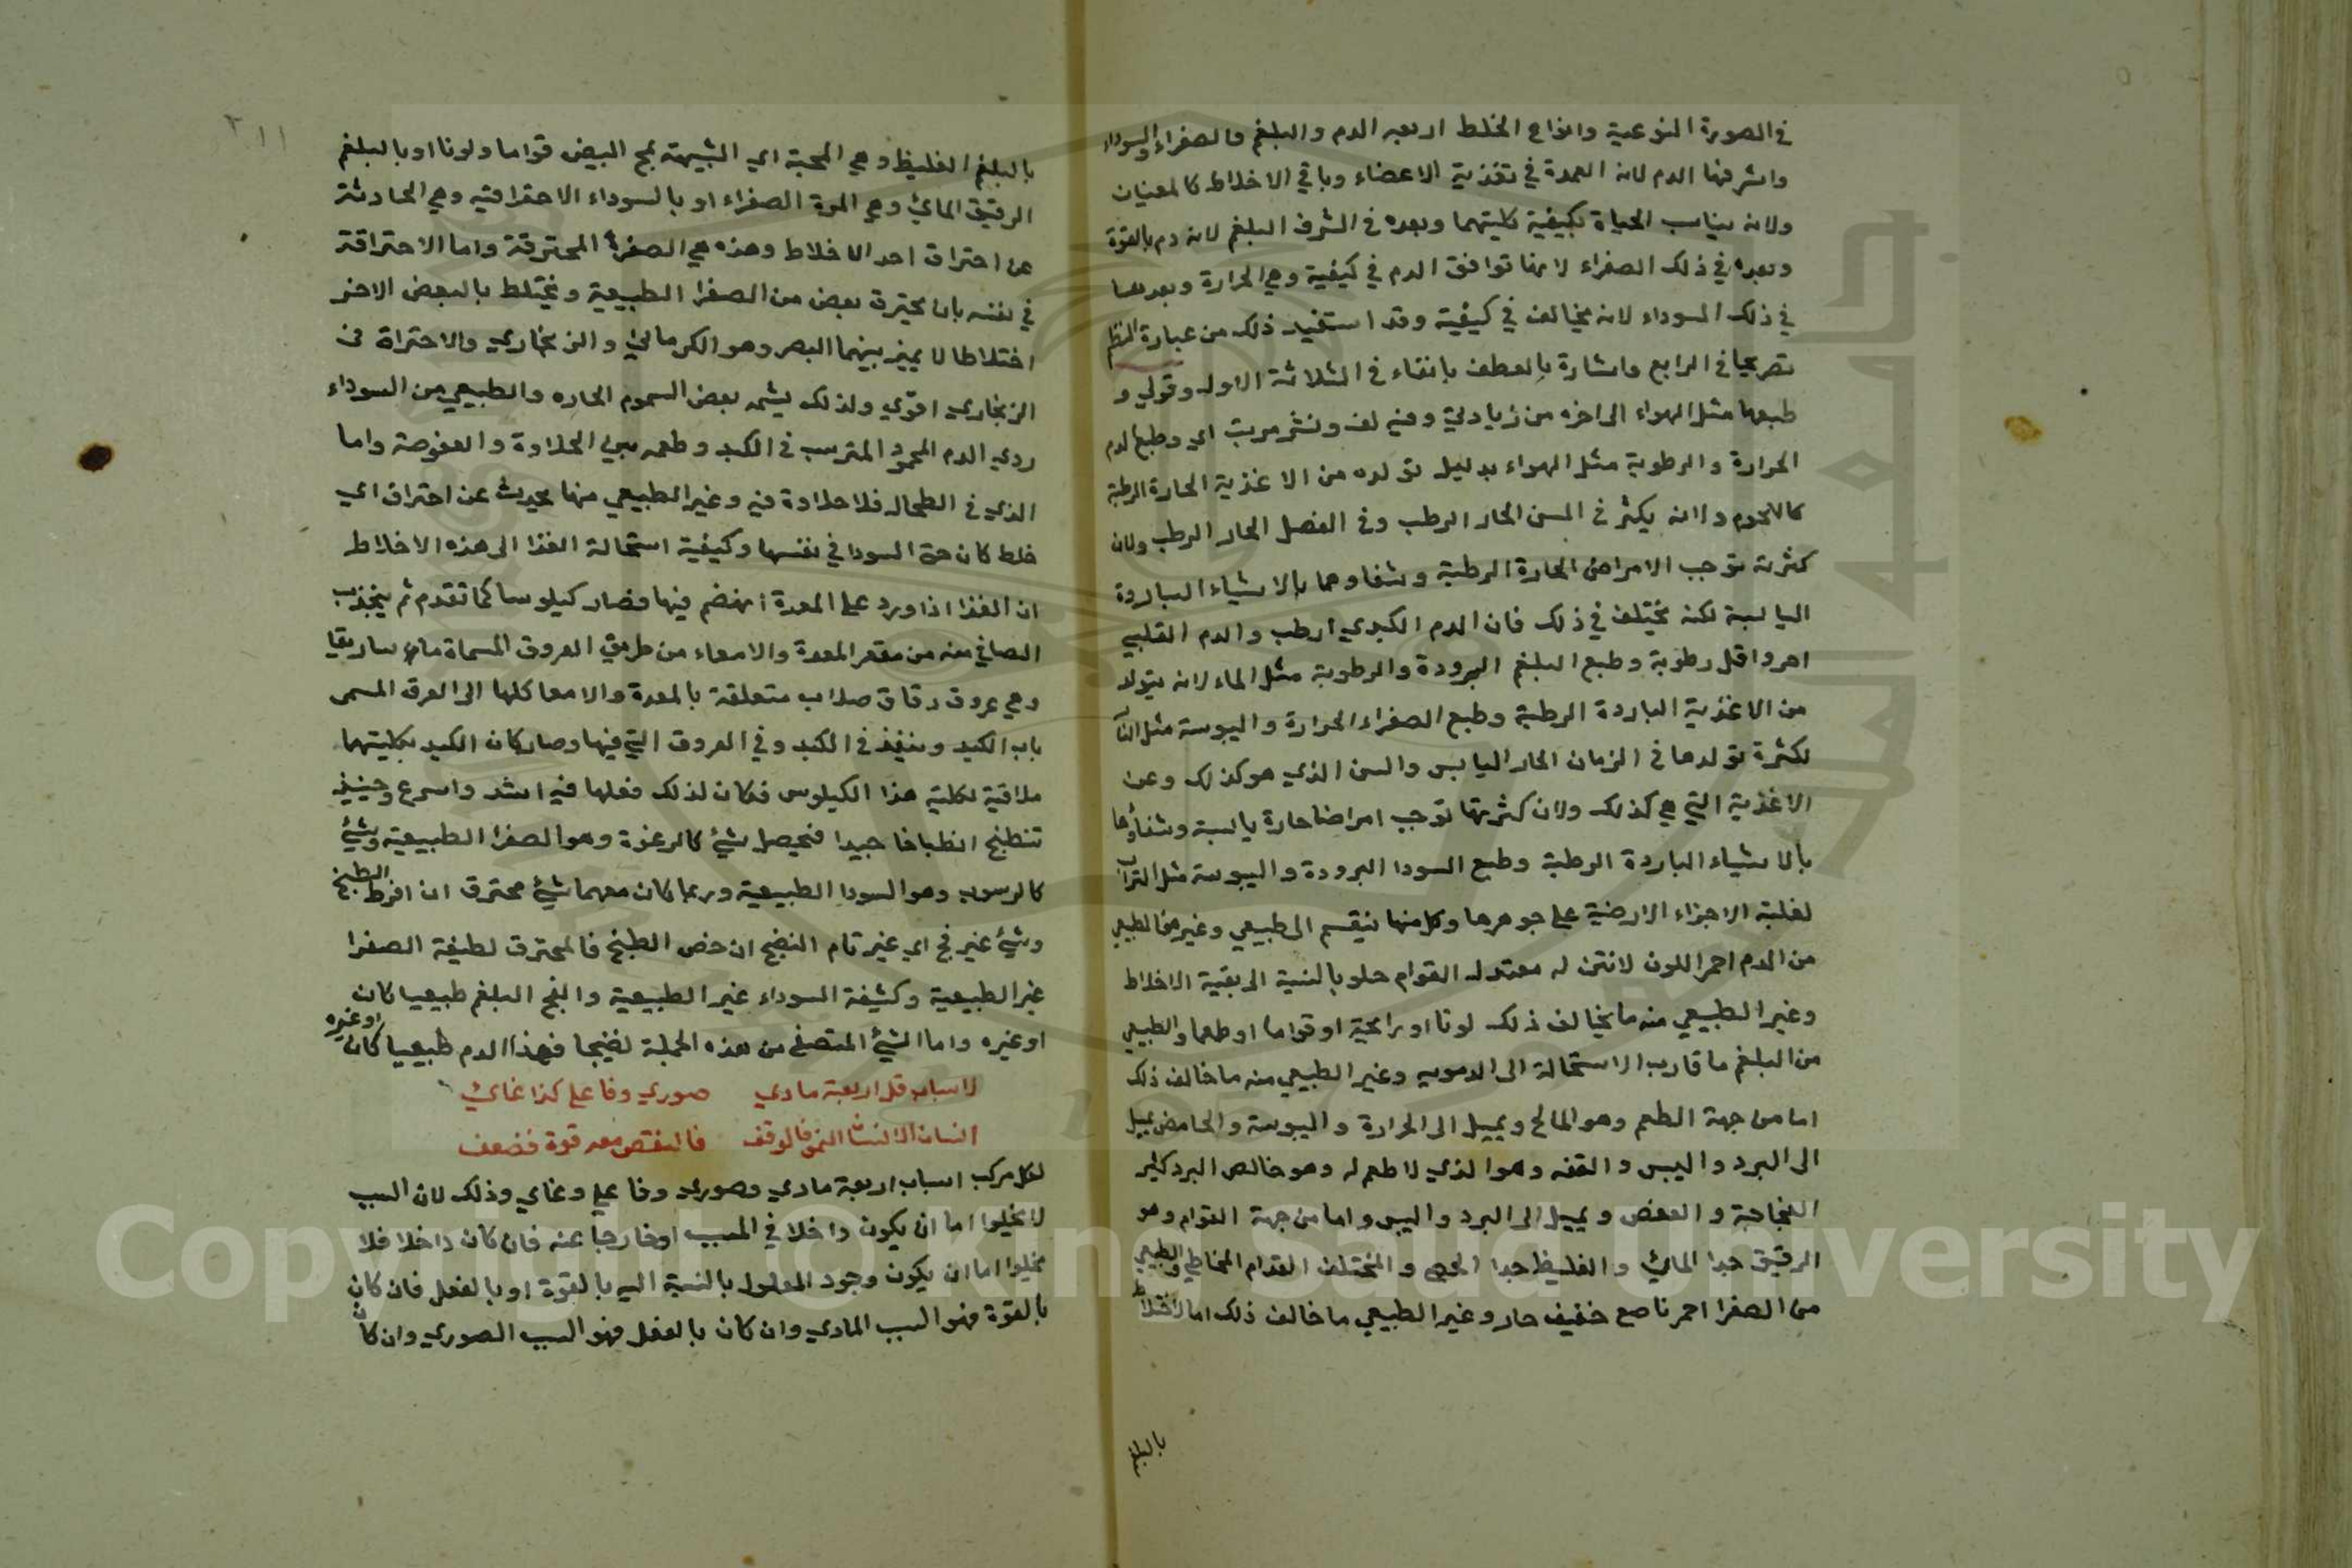 في الصورة النوعية وانواع الخلط اربعه الدم والبلغم والصفراء والسوداء
واشرفها الدم لانه العمدة في تغذية الاعضاء وباقي الاخلاط كالمعينات
ولانه يناسب الحياة بكيفية كليتهما وبعده في الشرف البلغم لانه دم بالقوة
وبعده في ذلك الصفراء لانها توافق الدم في كيفية وهي الحرارة وبعدها
في ذلك السوداء لانه يخالف في كيفية وقد استفيد ذلك من عبارة النظم
تصريحا في الرابع واشارة بالعطف بالفاء في الثلاثة الاول وقولي و
طبعها مثل الهواء الى اخره من زيادتي وفيه لف ونشر مرتب اي وطبع الدم
الحرارة والرطوبة مثل الهواء بدليل تولده من الاغذية الحارة الرطبة
كاللحوم ولانه يكثر في السن الحار الرطب وفي الفصل الحار الرطب ولان
كثرته توجب الامراض الحارة الرطبة وشفاوها بالاشياء الباردة
اليابسة لكنه يختلف في ذلك فان الدم الكبدي ارطب والدم القلبي
احر واقل رطوبة وطبع البلغم البرودة والرطوبة مثل الماء لانه يتولد
من الاغذية الباردة الرطبة وطبع الصفراء الحرارة واليبوسة مثل النار
لكثرة تولدها في الزمان الحار اليابس والسن الذي هو كذلك وعن
الاغذية التي هي كذلك ولان كثرتها توجب امراضا حارة يابسة وشفاؤها
بالاشياء الباردة الرطبة وطبع السودا البرودة واليبوسة مثل التراب
لغلبة الاجزاء الارضية على جوهرها وكل منها ينقسم الى طبيعي وغيره فالطبيعي
من الدم احمر اللون لا نتن له معتدل القوام حلو بالنسبة الى بقية الاخلاط
وغير الطبيعي منه ما يخالف ذلك لونا او رائحية او قواما او طعما والطبيعي
من البلغم ما قارب الاستحالة الى الدمويه وغير الطبيعي منه ما خالف ذلك
اما من جهة الطعم وهو المالح ويميل الى الحرارة واليبوسة والحامض يميل
الى البرد واليبس والتفه وهو الذي لا طعم له وهو خالص البرد كثير
الفجاجة والعفص ويميل الى البرد واليبس واما من جهة القوام وهو
الرقيق جدا المائي والغليظ جدا الجصي والمختلف القوام المخاطي والطبيعي
من الصفرا احمر ناصع خفيف حار وغير الطبيعي ما خالف ذلك اما لاختلاط
بالبلغم
١١ ٣
بالبلغم الغليظ وهي المحية اي الشبيهة بمح البيض قواما ولونا او بالبلغم
الرقيق المائي وهو المرة الصفراء او بالسوداء الاحتراقيه وهي الحادثة
عن احتراق احد الاخلاط وهذه هي الصفراء المحترقة واما الاحتراقة
في نفسه بان يحترق بعض من الصفرا الطبيعية ويختلط بالبعض الاخر
اختلاطا لا يميز بينهما البصر وهو الكرمائي والزنجاري والاحتراق في
الزنجاري اقوي ولذلك يشبه بعض السموم الحاره والطبيعي من السوداء
ردي الدم المحمود المترسب في الكبد وطعمه بين الحلاوة والعفوصة واما
الذي في الطحال فلا حلاوة فيه وغير الطبيعي منها يحدث عن احتراق اي
خلط كان حتى السودا في نفسها وكيفية استحالة الغذا الى هذه الاخلاط
ان الغذا اذا ورد على المعدة انهضم فيها فصار كيلوسا كما تقدم ثم ينجذب
الصافي منه من مقعر المعدة والامعاء من طريق العروق المسماة ماساريقا
وهي عروق دقاق صلاب متعلقة بالمعدة والامعا كلها الى العرق المسمى
باب الكبد وينفذ في الكبد وفي العروق التي فيها وصار كان الكبد بكليتهما
ملاقية لكلية هذا الكيلوس فكان لذلك فعلها فيه اشد واسرع وحينئذ
تنطبخ انطباخا جيدا فيحصل شيئ كالرغوة وهو الصفرا الطبيعية وشيئ
كالرسوب وهو السودا الطبيعية وربما كان معهما شيئ محترق ان افرط الطبخ
وشيئ غير فج اي غير تام النضج ان خص الطبخ فالمحترق لطيفة الصفرا
غير الطبيعية وكثيفة السوداء غير الطبيعية والفج البلغم طبيعيا كان
او غيره واما الشيئ المتصفى من هذه الجملة نضيجا فهذا الدم طبيعيا كان او غيره
لاسباب قل اربعة مادي صوري وفاعلي كذا غائي
انسان الانشا النمو فالوقف فالنقص معه قوة فضعف
لكل مركب اسباب اربعة مادي وصوري وفاعلي وغاي وذلك لان السبب
لا يخلوا اما ان يكون داخلا في المسبب او خارجا عنه فان كان داخلا فلا
يخلوا اما ان يكون وجود المعلول بالنسبة اليه بالقوة او بالفعل فان كان
بالقوة فهو السبب المادي وان كان بالفعل فهو السبب الصوري وان كان
Copyright © King Saud University